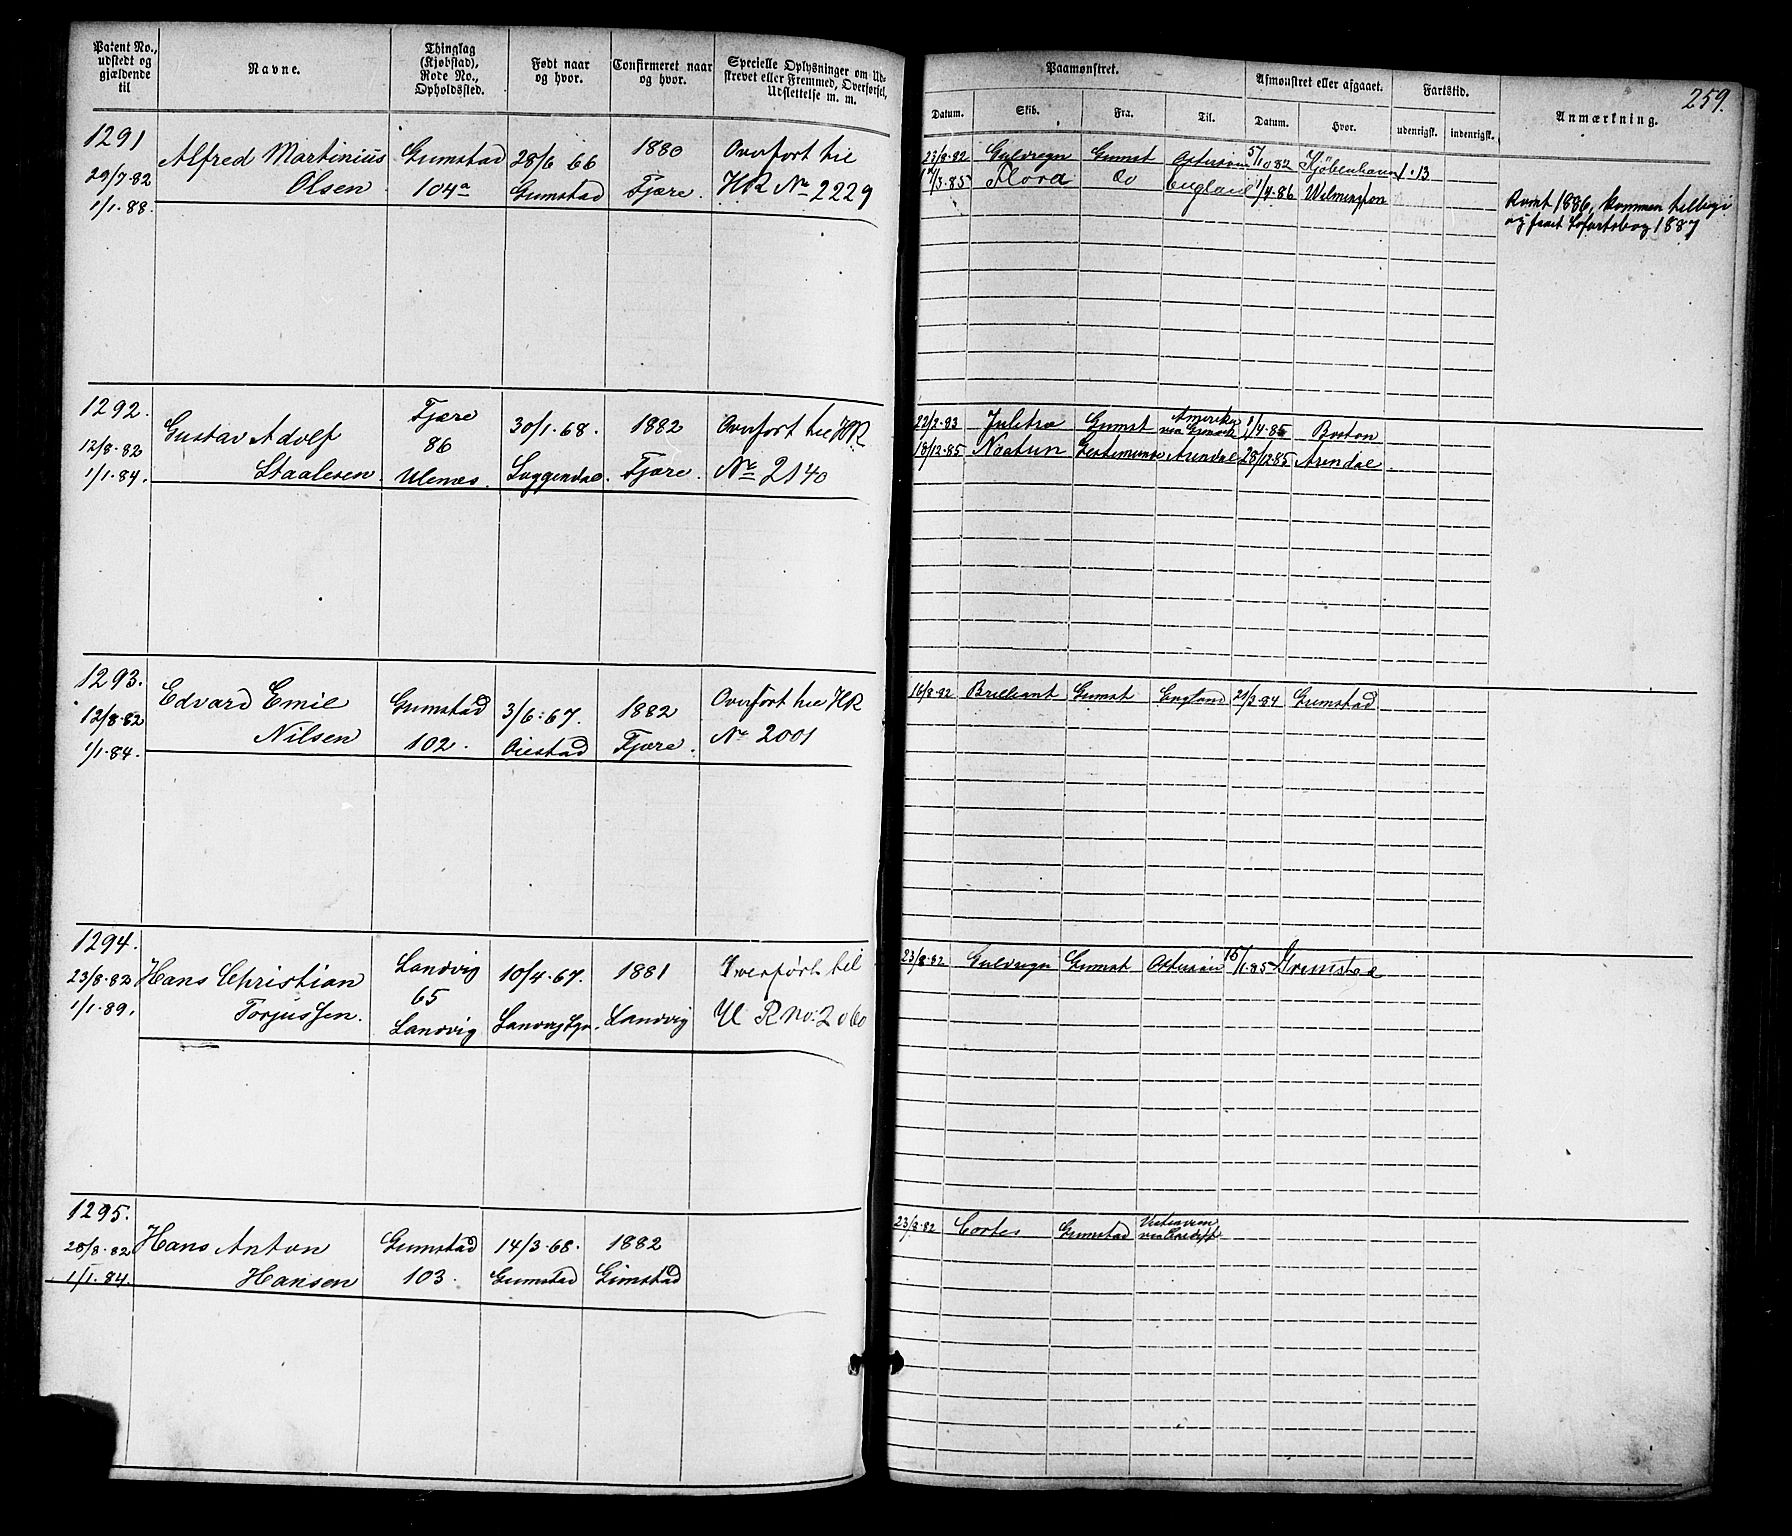 259.
Patent No., udstedt og gjældende til
Navne.
Thinglag (Kjøbstad), Rode No., Opholdssted.
Født naar og hvor.
Confirmeret naar og hvor.
Specielle Oplysninger om Udskrevet eller Fremmed, Overførsel, Udslettelse m. m.
Paamønstret.
Datum. Skib. Fra. Til.
Afmønstret eller afgaaet.
Datum. Hvor.
Fartstid.
udenrigsk. indenrigsk.
Anmærkning.
1291
29/7 82
1/1 88.
Alfred Martinius
Olsen
Grimstad
104a
28/6 66
Grimstad
1880
Fjære.
Overført til
HR No 2229
23/8 82 Guldregn Grimst Østersøen 5/10 82 Kjøbenhavn 1.13
/3.85 Flora Do England 1/4 86 Wilmington
Rømt 1886, kommen
og faaet Søfartsbog 1887
1292.
12/8 82
1/1.84.
Gustav Adolf
Staalesen
Fjære
86
Ulenes.
30/1.68.
Luggendae.
1882
Fjære.
Overført til HR
No 2140
22/2.83 Grimst Amerika via /4.85 Boston
18/12.85 Nostun Gestemunde Arendal 28/12 85 Arendal
1293.
12/8.82
1/1.84.
Edvard Emil
Nilsen
Grimstad
102.
3/6.67.
Øiestad
1882
Fjære.
Overført til HR
No 2001
16/8.82 Brilliant Grimst England 21/2.84 Grimstad
1294.
23/8.82
1/1.89.
Hans Christian
Torjussen.
Landvig
65
Landvig
10/4.67.
1881
Landvig
Overført til
H R no. 2060
23/8.82 Guldregn Grimst Østersøen 15/1.85 Grimstad
1295.
28/8.82
1/1.84.
Hans Anton
Hansen
Grimstad
103.
14/3.68.
Grimstad
1882
Grimstad
23/8.82 Cortes Grimstad via Cardiff